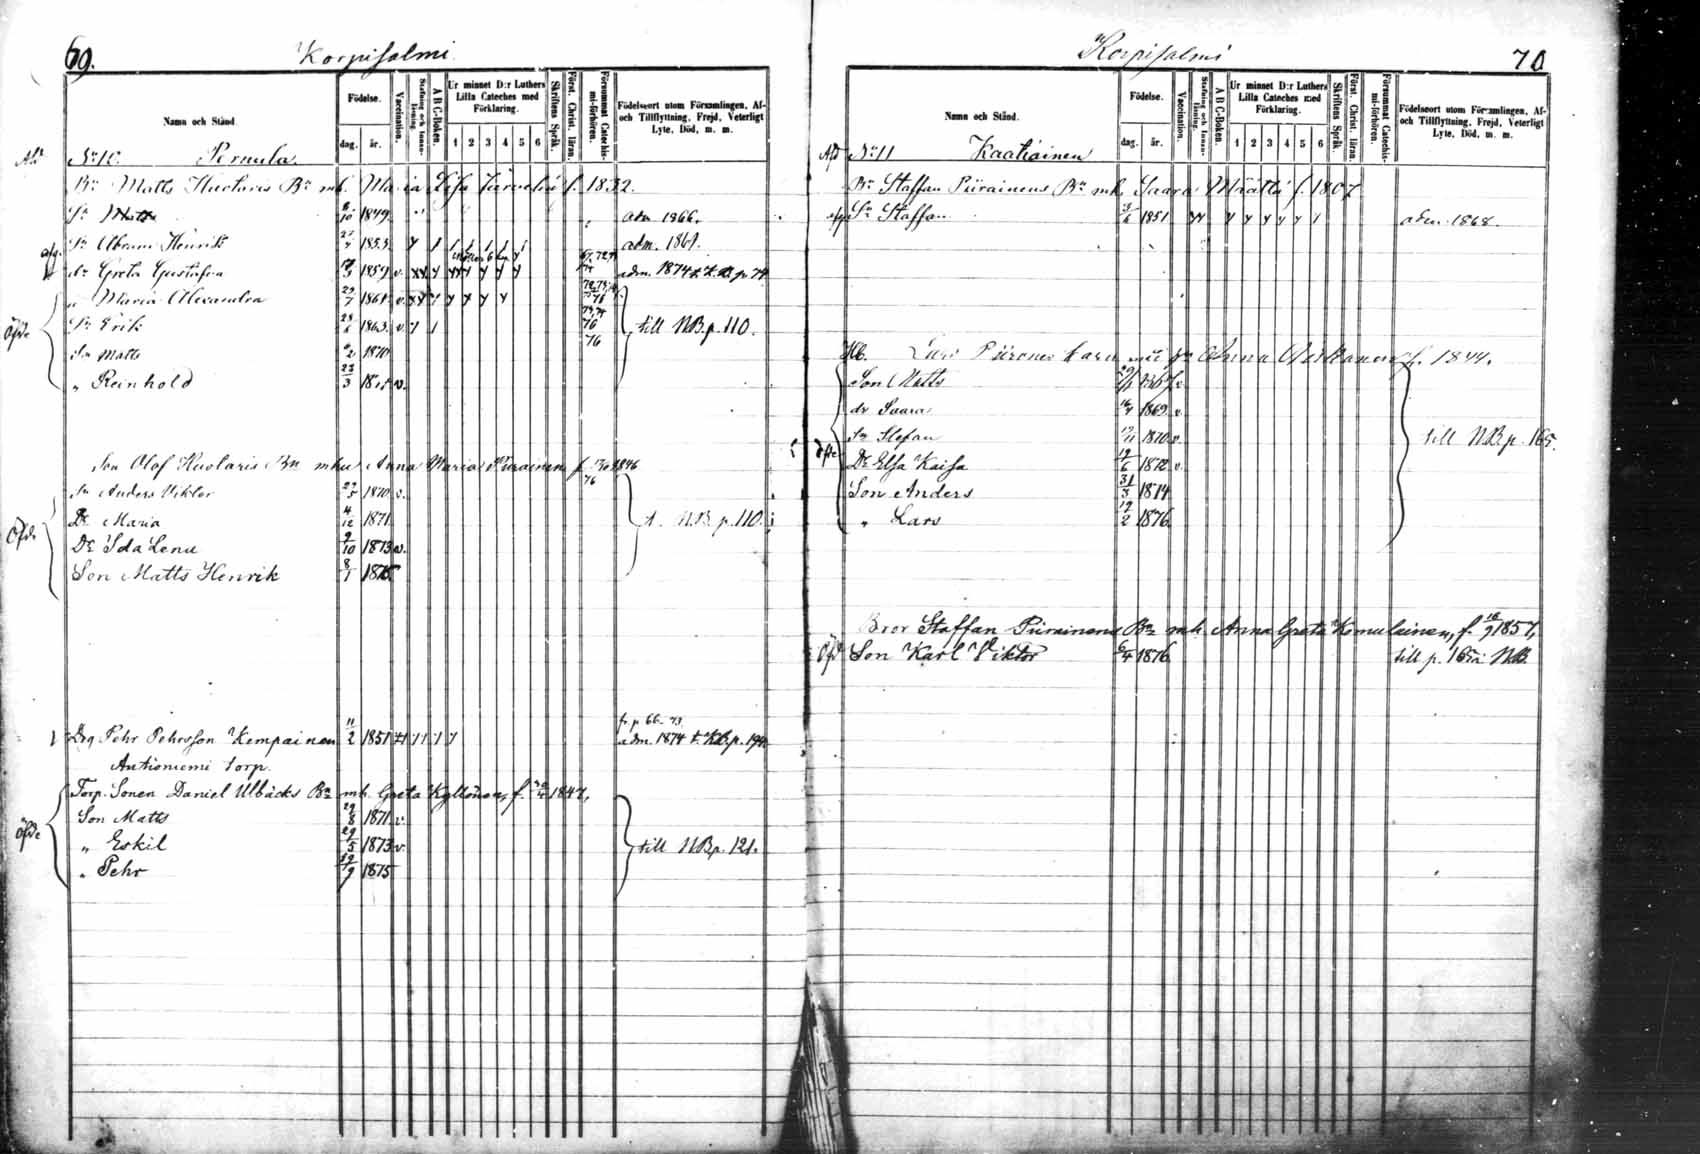 69. Korpisalmi.
Namn och Stånd.
Födelse.
dag. år.
Vaccination.
Stafning och Innan-läsning.
A B C-Boken.
Ur minnet D:r Luthers Lilla Cateches med Förklaring.
1 2 3 4 5 6
Skriftens Språk.
Först. Christ. läran.
Försummat Catechis-mi-förhören.
Födelseort utom Församlingen, Af- och Tillflyttning, Frejd, Veterligt Lyte, Död, m. m.
No 10. Pernula
Bn Matts Huotaris Bn mh. Maria Lisa f. 1832.
Sn Matts 8/10 1849 adm. 1866.
Sn Abram Henrik adm.
dr Greta Gustafva adm. 1874
" Maria Alexandra
Sn Erik till N.B. p. 110.
Sn Matts 1870
" Reinhold v.
Son Olof Huotaris Bn mhu Anna Maria Piirainen f. 1846
Sn Anders Viktor 1870 v.
Dr Maria 4/12 1871 t. N.B. p. 110.
Dr Ida Lena 9/10 1873 v.
Son Matts Henrik 8/1 1875
fr. p. 66. 73.
Drg Pehr Pehrsson Kempainen 11/2 1851 adm. 1874 t. KB. p. 194.
Antioniemi torp.
Torp. Sonen Daniel Ulbäcks Bn mh. Greta Kyllönen, f. 1847,
Son Matts 29/8 1871 v.
" Eskil 29/5 1873 v. till NB p. 121.
" Pehr 12/9 1875
Öfde
Korpisalmi 70
Namn och Stånd.
Födelse.
dag. år.
Vaccination.
Stafning och Innan-läsning.
A B C-Boken.
Ur minnet D:r Luthers Lilla Cateches med Förklaring.
1 2 3 4 5 6
Skriftens Språk.
Först. Christ. läran.
Försummat Catechis-mi-förhören.
Födelseort utom Församlingen, Af- och Tillflyttning, Frejd, Veterligt Lyte, Död, m. m.
No 11 Kaatiainen
Bn Staffan Piirainens Bn mh. Saara Määttä f. 1807
Sn Staffan 3/6 1851 adm. 1868.
Hb. Lars Piirainens barn med Anna f. 1844.
Son Matts v.
dr Saara 16/4 1869 v.
Sn Stefan 19/11 1870 v. till N.B. p. 165.
Dr Elsa Kaisa 12/6 1872 v.
Son Anders 31/3 1874
" Lars 12/2 1876
Bror Staffan Piirainens Bn mh. Anna Greta Komulainen, f. 18/9 1857,
Son Karl Viktor 6/4 1876 till p. 165 i N.B.